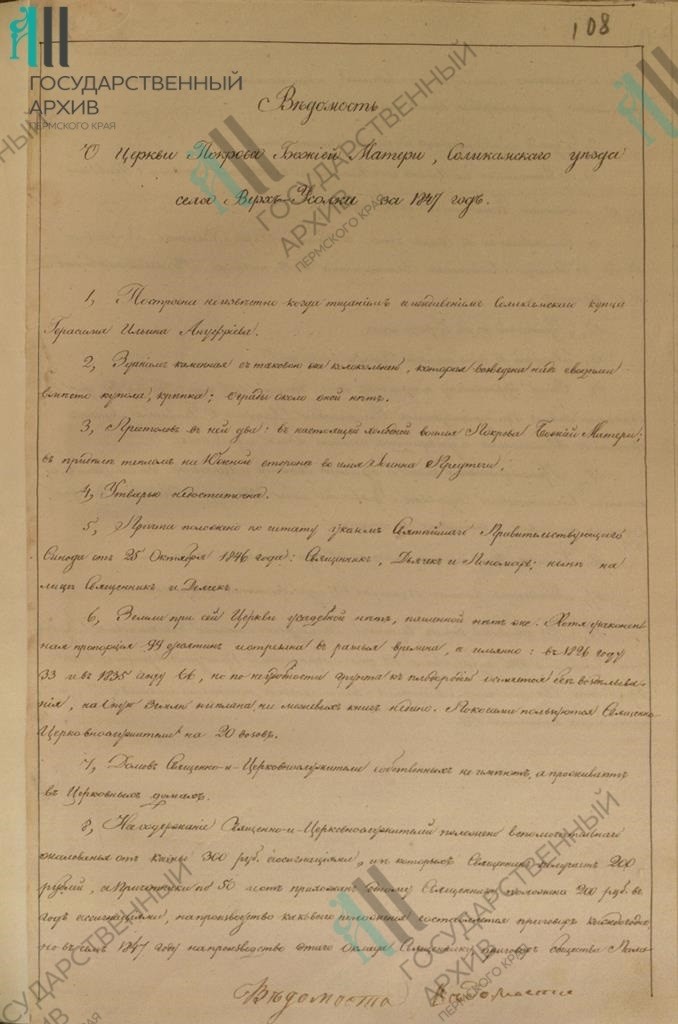 108
ГОСУДАРСТВЕННЫЙ
АРХИВ
ПЕРМСКОГО КРАЯ
Вѣдомость
О Церкви Покрова Божіей Матери, Соликамскаго уѣзда
села Верхъ-Усолки за 1847 годъ.
1, Построена неизвѣстно когда тщаніемъ и иждивеніемъ Соликамскаго купца
Герасима Ильина Ануфріева.
2, Зданіемъ каменная съ таковою же колокольней, которая возведена надъ сводами
вмѣсто купола, крѣпка; ограды около оной нѣтъ.
3, Престоловъ въ ней два: въ настоящей холодной во имя Покрова Божіей Матери;
въ придѣлѣ тепломъ на Южной сторонѣ во имя Іоанна Предтечи.
4, Утварью недостаточна.
5, Причта положено по штату указомъ Святѣйшаго Правительствующаго
Синода отъ 25 Октября 1846 года: Священникъ, Дьячекъ и Пономарь; нынѣ на
лицо Священникъ и Дьячекъ.
6, Земли при сей Церкви усадебной нѣтъ, пашенной нѣтъ же. Хотя узаконен
ная пропорція 99 десятинъ и отрезана въ разныя времена, а имянно: въ 1826 году
33 и въ 1835 году 66, но по неудобности грунта къ плодородію остается безъ воздѣлыва
нія, на сію Землю ни плана, ни межевыхъ книгъ не дано. Покосами пользуются Священно
Церковнослужители на 20 возовъ.
7, Домовъ Священно-и-Церковнослужители собственныхъ не имѣютъ, а проживаютъ
въ Церковныхъ домахъ.
8, На содержаніе Священно-и-Церковнослужителей положено вспомогательнаго
жалованья отъ казны 300 руб. ассигнаціями, изъ которыхъ Священникъ получаетъ 200
рублей, а Причетники по 50 отъ прихожанъ Священнику положена 200 руб. въ
годъ ассигнаціями, на производство каковаго положенія составляется приговоръ каждогодно,
но въ семъ 1847 году на производство этого оклада Священнику приговоръ общества
Вѣдомости Вѣдомости